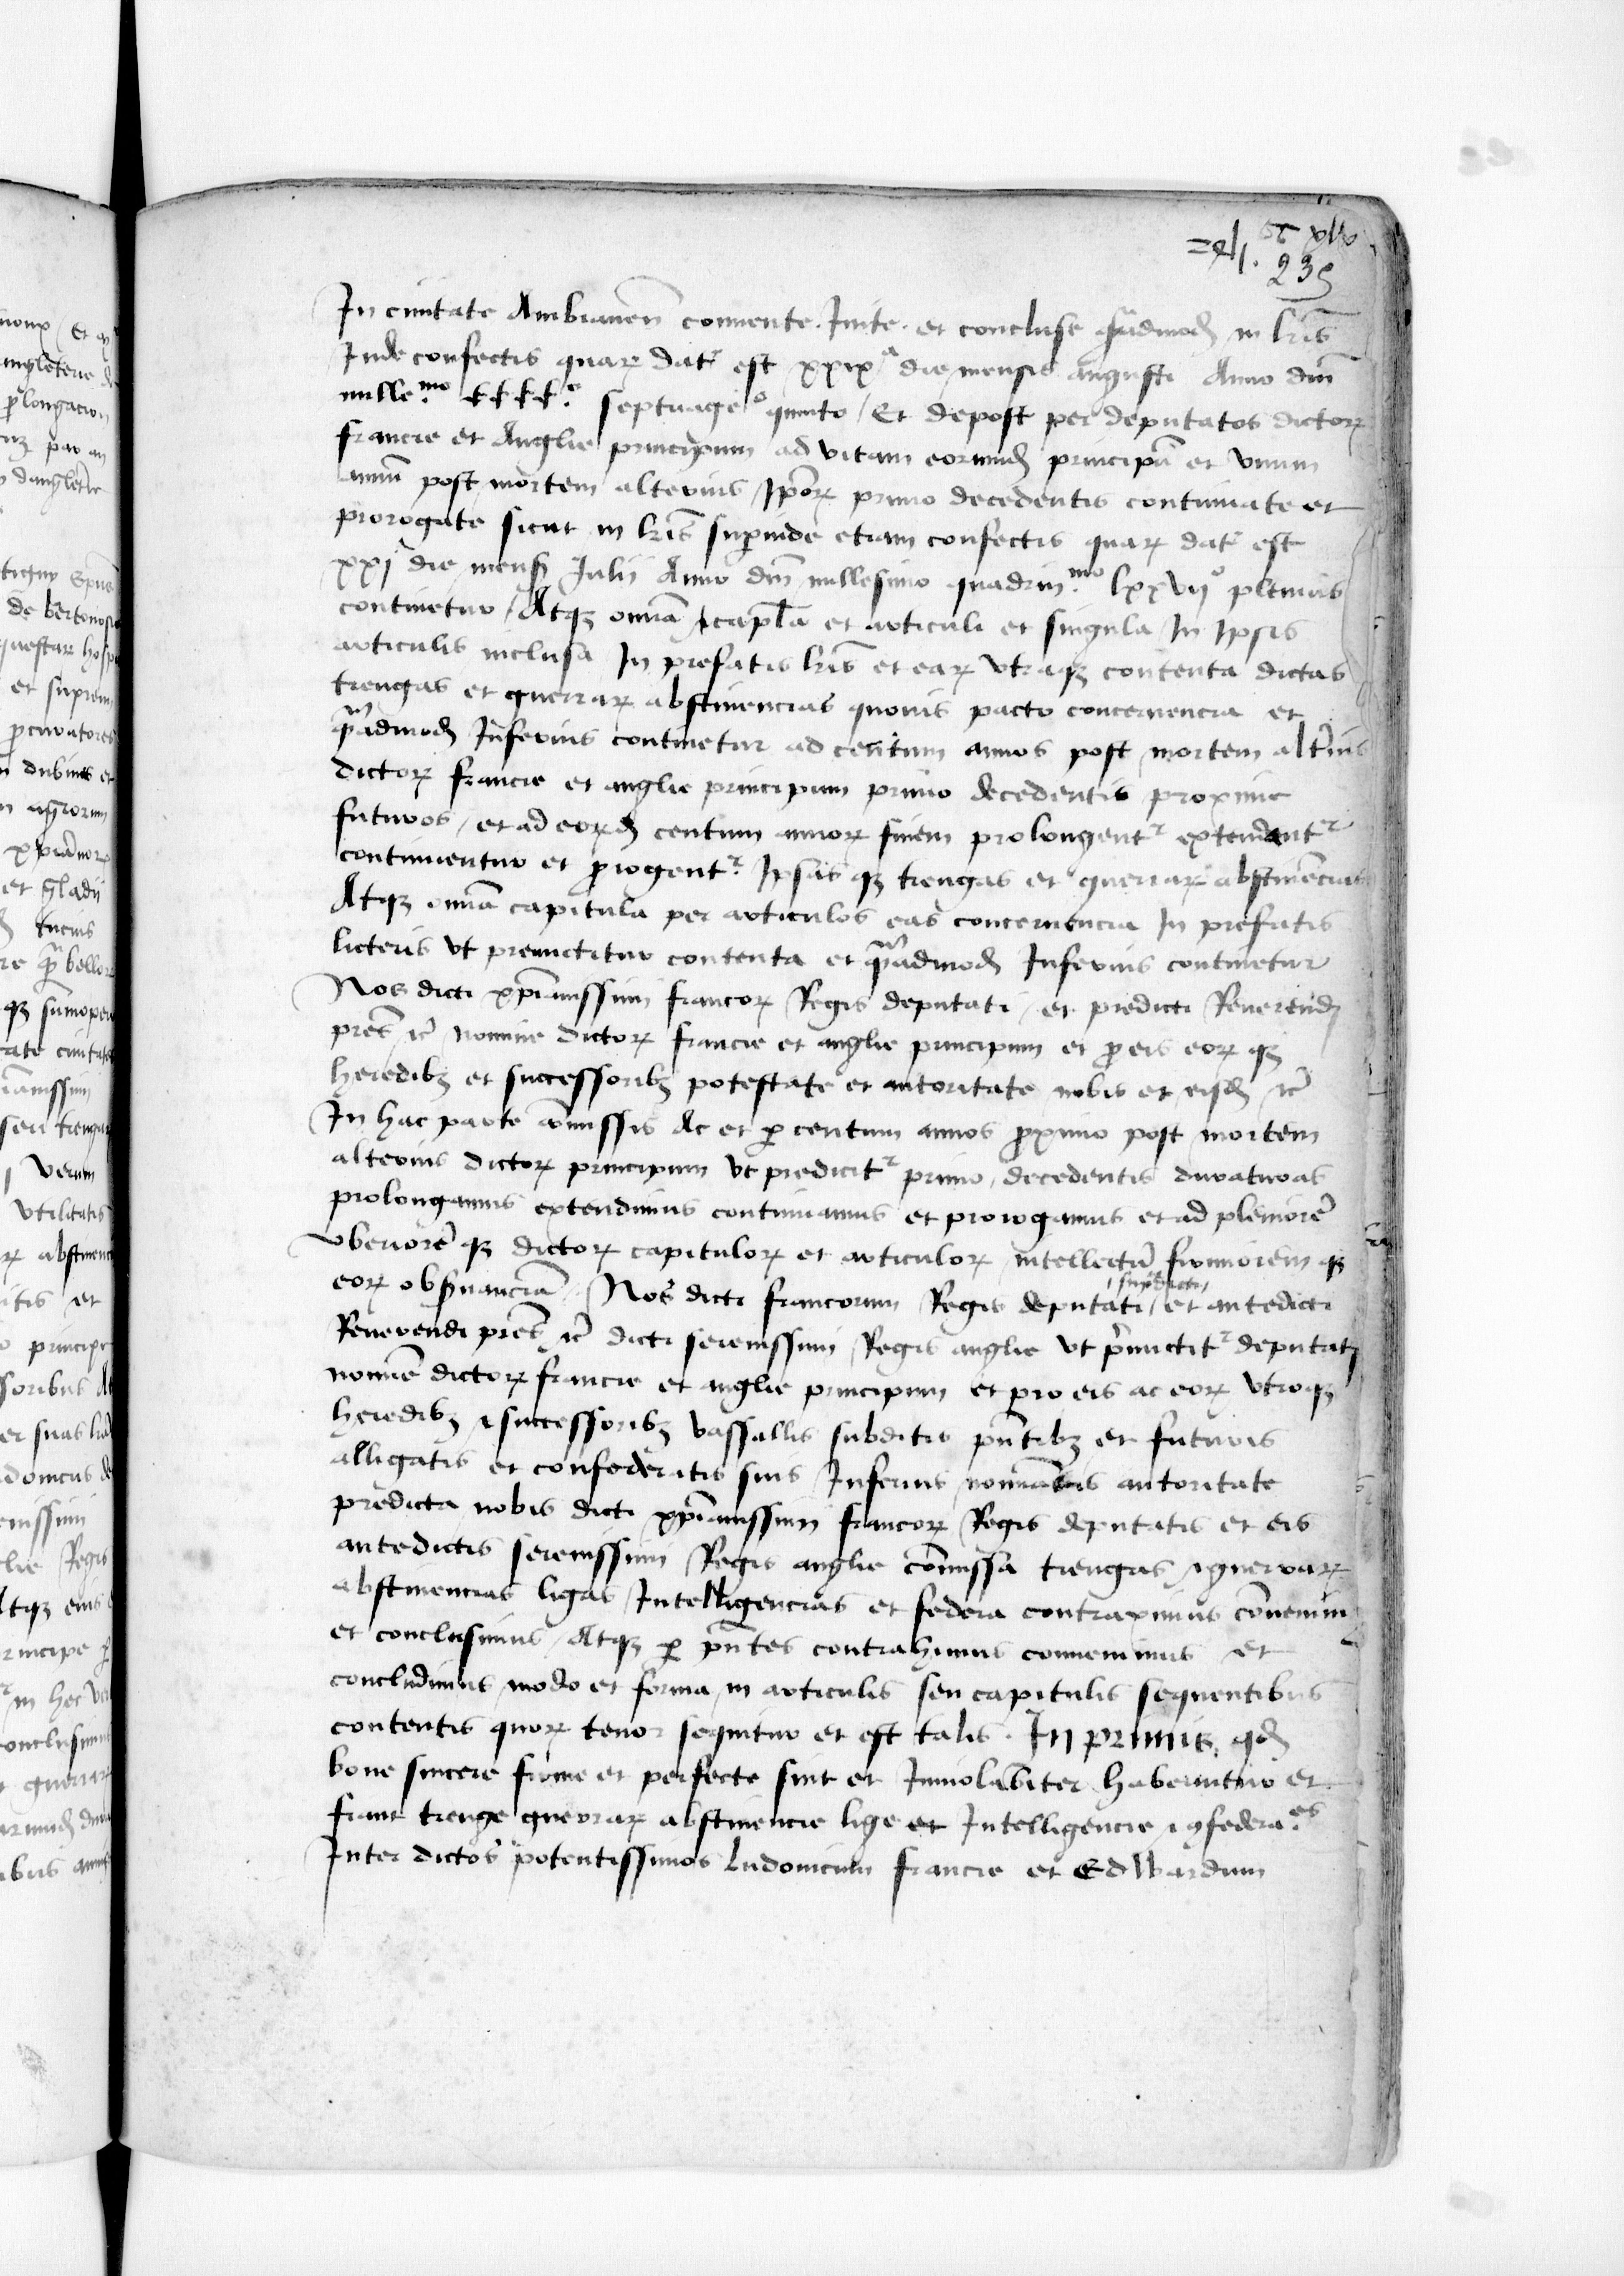 239
In civitate Ambianen̄ convente. Inite. et concluse qūadmod̄ in l̄ris
Inde confectis quaꝝ dat̉ est xxixᵃ die mensis augusti Anno dn̄i
mille.ᵐᵒ septuageᵒ quinto / Et depost per deputatos dictoꝝ
francie et Anglie principum ad vitam eorumd̄ principū et unum
annū post mortem alterius Ip̄oꝝ primo decedentis continuate et
prorogate sicut in l̄ris suꝑinde etiam confectis quaꝝ dat̉ est
xxj die mens̄ Julij Anno dn̄i millesimo quadrin.ᵐᵒ lxxvijᵒ plenius
continetur / Atqꝫ om̄ia capl̄a et articuli et singula In Ipsis
articulis inclusa In prefatis l̄ris et eaꝝ utraqꝫ contenta dictas
treugas et guerraꝝ abstinencias quovis pacto concernencia et
qūadmod̄ Inferius continetur ad centum annos post mortem alt̄ius
dictoꝝ francie et anglie principum primo decedentis proxime
futuros / et ad eoꝝd̄ centum annoꝝ finem prolongent̉ extendant̉
continuentur et ꝓrogent̉. Ipsas qꝫ treugas et guerraꝝ abstinēcias
Atqꝫ om̄ia capitula per articulos eas concernencia In prefatis
licteris ut premictitur contenta et qūadmod̄ Inferius continetur
Nos dicti xp̄ianissimi francoꝝ Regis deputati / et predicti Reverend̄
pr̄es ⁊c̄ nomine dictoꝝ francie et anglie principum et ꝓ eis eoꝝ qꝫ
heredibꝫ et successoribꝫ potestate et autoritate nobis et eisd̄ ⁊c̄
In hac parte cōmissis Ac et ꝑ centum annos ꝓximo post mortem
alterius dictoꝝ principum ut predicit̉ primo decedentis duraturas
prolongamus extendimus continuamus et prorogamus et ad pleniorē
uberiorē qꝫ dictoꝝ capituloꝝ et articuloꝝ intellectū firmiorem qꝫ
eoꝝ obs̄vanciā / Nos dicti francorum Regis deputati / et antedicti
Reverendi pr̄es ⁊c̄ dicti serenissimi Regis anglie ut p̄mictit̉ deputati
nomīe dictoꝝ francie et anglie principum et pro eis ac eoꝝ utroqꝫ
heredibꝫ ⁊ successoribꝫ vassallis subditis pn̄tibꝫ et futuris
alligatis et confederatis suis Inferius nominatis autoritate
predicta nobis dicti xp̄ianissimi francoꝝ Regis deputatis et eis
antedictis serenissimi Regis anglie cōmissa treugas ⁊ guerraꝝ
abstinencias ligas Intelligencias et federa contraximus cōvenim
et conclusimus / Atqꝫ ꝑ pn̄tes contrahimus convenimus et
concludimus modo et forma in articulis seu capitulis sequentibus
contentis quoꝝ tenor sequitur et est talis. In primis, qd̄
bone sincere firme et perfecte sint et Inviolabiliter habeantur et
fiant treuge guerraꝝ abstinencie lige et Intelligencie ⁊ ꝯfedera.ᵉˢ
Inter dictos potentissimos ludovicum francie et Edwardum